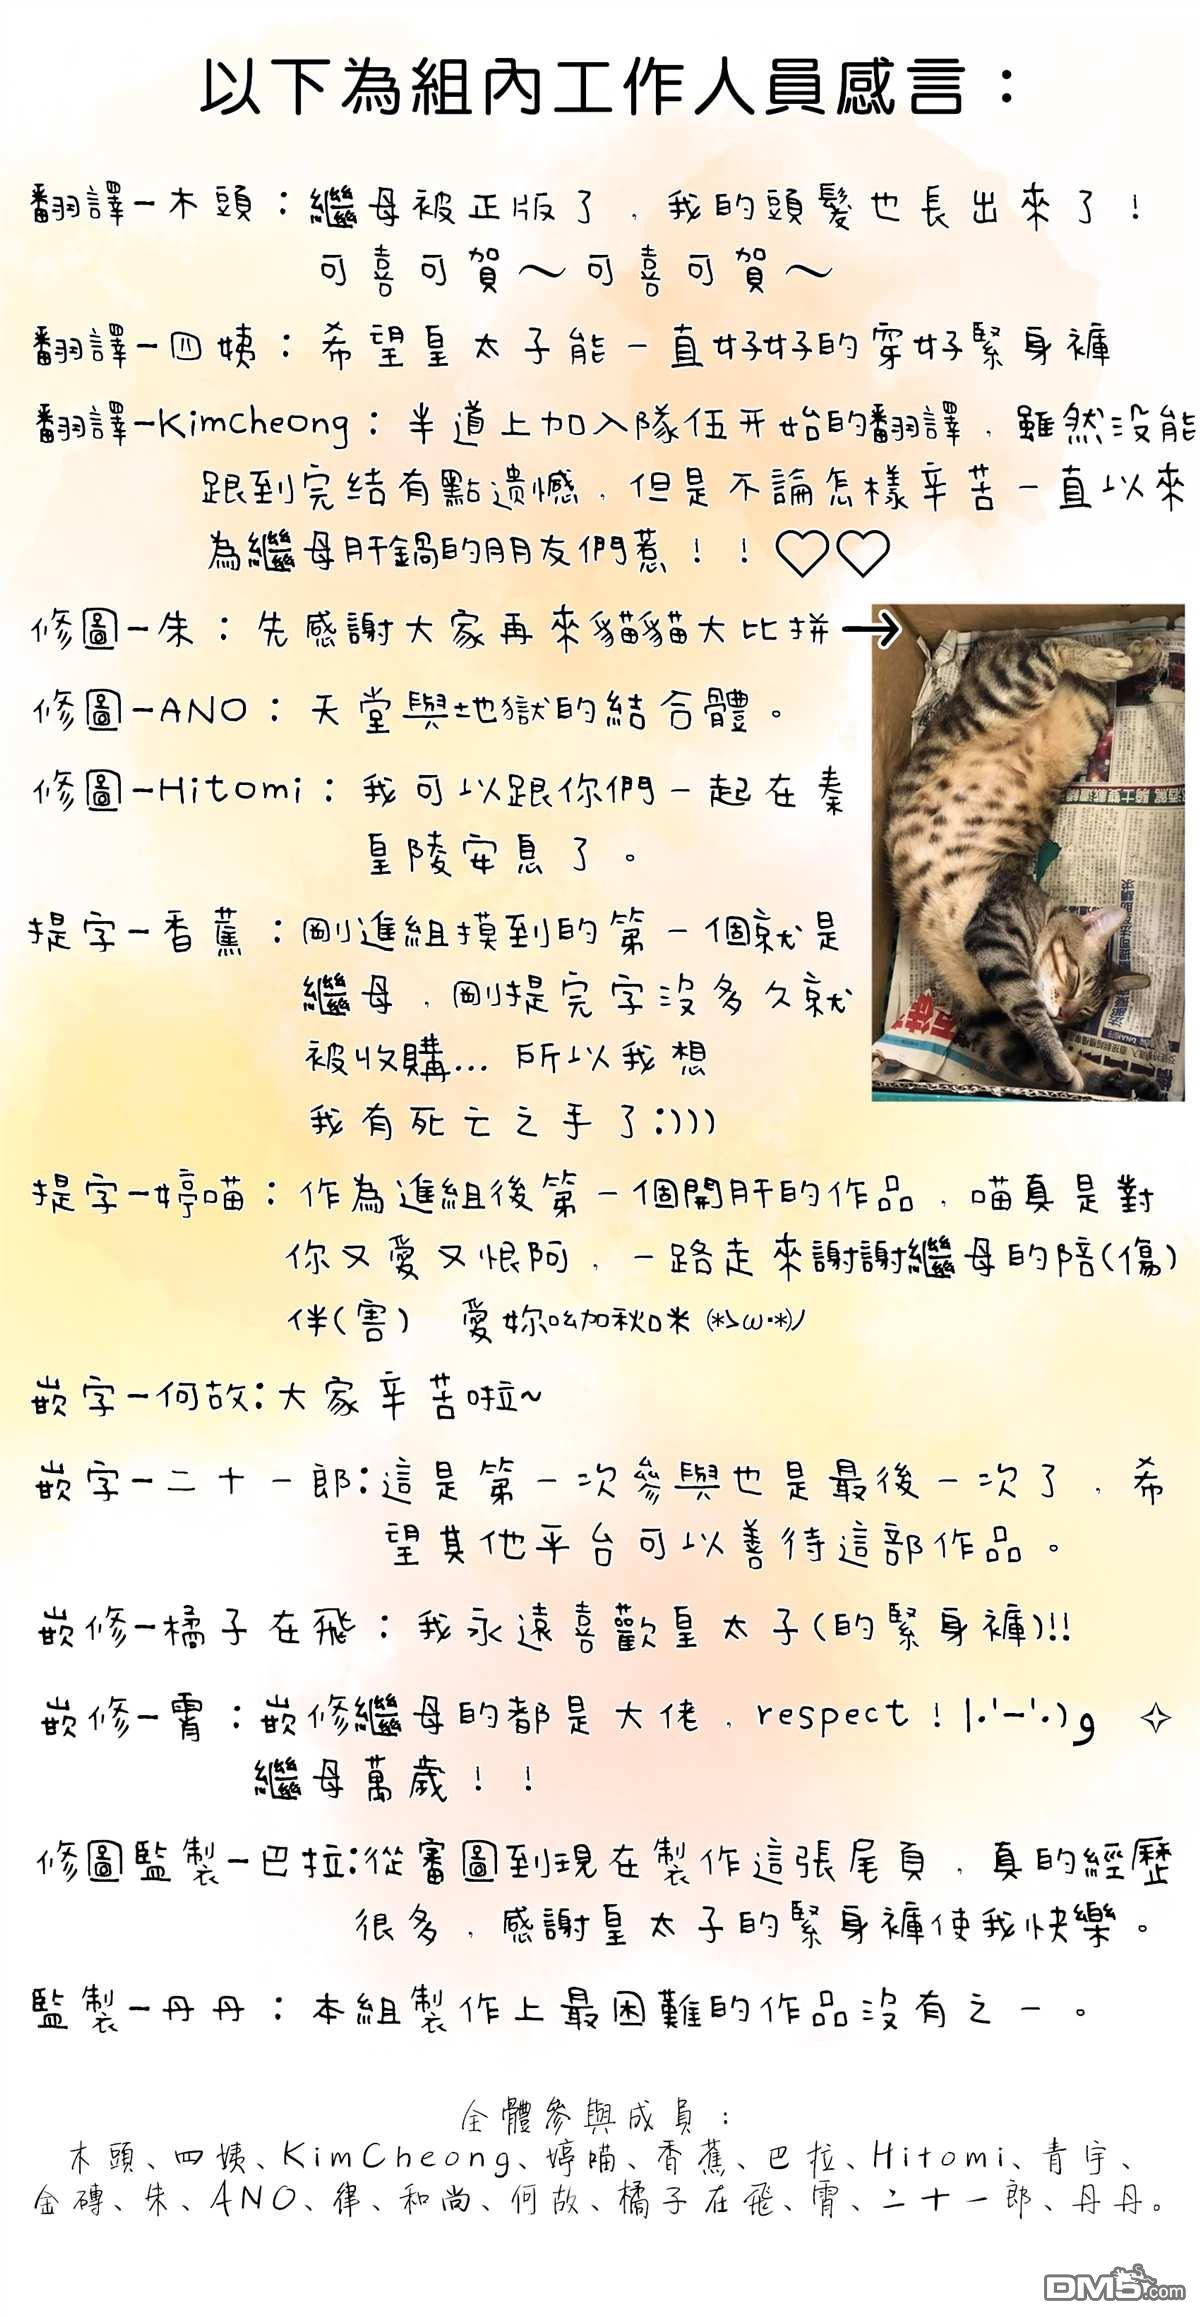 以下為組內工作人員感言：
翻譯－木頭：繼母被正版了，我的頭髮也長出來了！
可喜可賀～可喜可賀～
翻譯－四姨：希望皇太子能一直好好的穿好緊身褲
翻譯－Kimcheong：半道上加入隊伍开始的翻譯，雖然没能
跟到完结有點遗憾，但是不論怎樣辛苦一直以來
為繼母肝鍋的朋友們惹！！♡♡
修圖－朱：先感謝大家再來貓貓大比拼→
修圖－ANO：天堂與地獄的結合體。
修圖－Hitomi：我可以跟你們一起在秦
皇陵安息了。
提字－香蕉：剛進組摸到的第一個就是
繼母，剛提完字沒多久就
被收購... 所以我想
我有死亡之手了:)))
提字－婷喵：作為進組後第一個開肝的作品，喵真是對
你又愛又恨阿，一路走來謝謝繼母的陪(傷)
伴(害)　愛妳呦加秋咪 (*>ω･*)ﾉ
嵌字－何故：大家辛苦啦~
嵌字－二十一郎：這是第一次參與也是最後一次了，希
望其他平台可以善待這部作品。
嵌修－橘子在飛：我永遠喜歡皇太子(的緊身褲)!!
嵌修－霄：嵌修繼母的都是大佬，respect！|･'-'･)و ✧
繼母萬歲！！
修圖監製－巴拉：從審圖到現在製作這張尾頁，真的經歷
很多，感謝皇太子的緊身褲使我快樂。
監製－丹丹：本組製作上最困難的作品沒有之一。
全體參與成員：
木頭、四姨、KimCheong、婷喵、香蕉、巴拉、Hitomi、青宇、
金磚、朱、ANO、律、和尚、何故、橘子在飛、霄、二十一郎、丹丹。
DM5.com